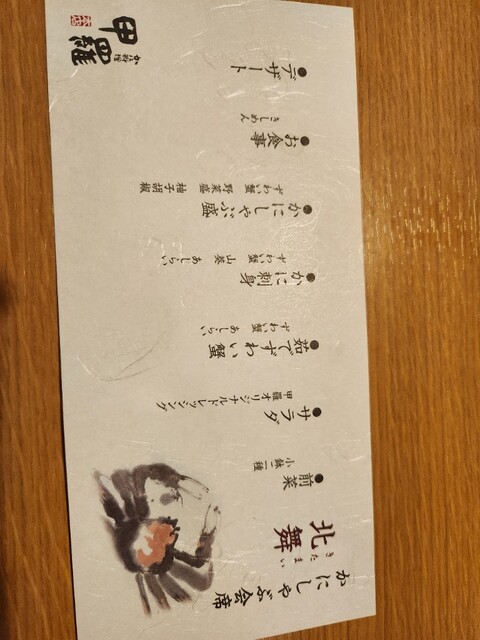 かにしゃぶ会席
北舞
きたまい
●前菜
小鉢二種
●サラダ
甲羅オリジナルドレッシング
●茹でずわい蟹
ずわい蟹 あしらい
●かに刺身
ずわい蟹 山葵 あしらい
●かにしゃぶ盛
ずわい蟹 野菜盛 柚子胡椒
●お食事
きしめん
●デザート
かに料理
甲羅
本店